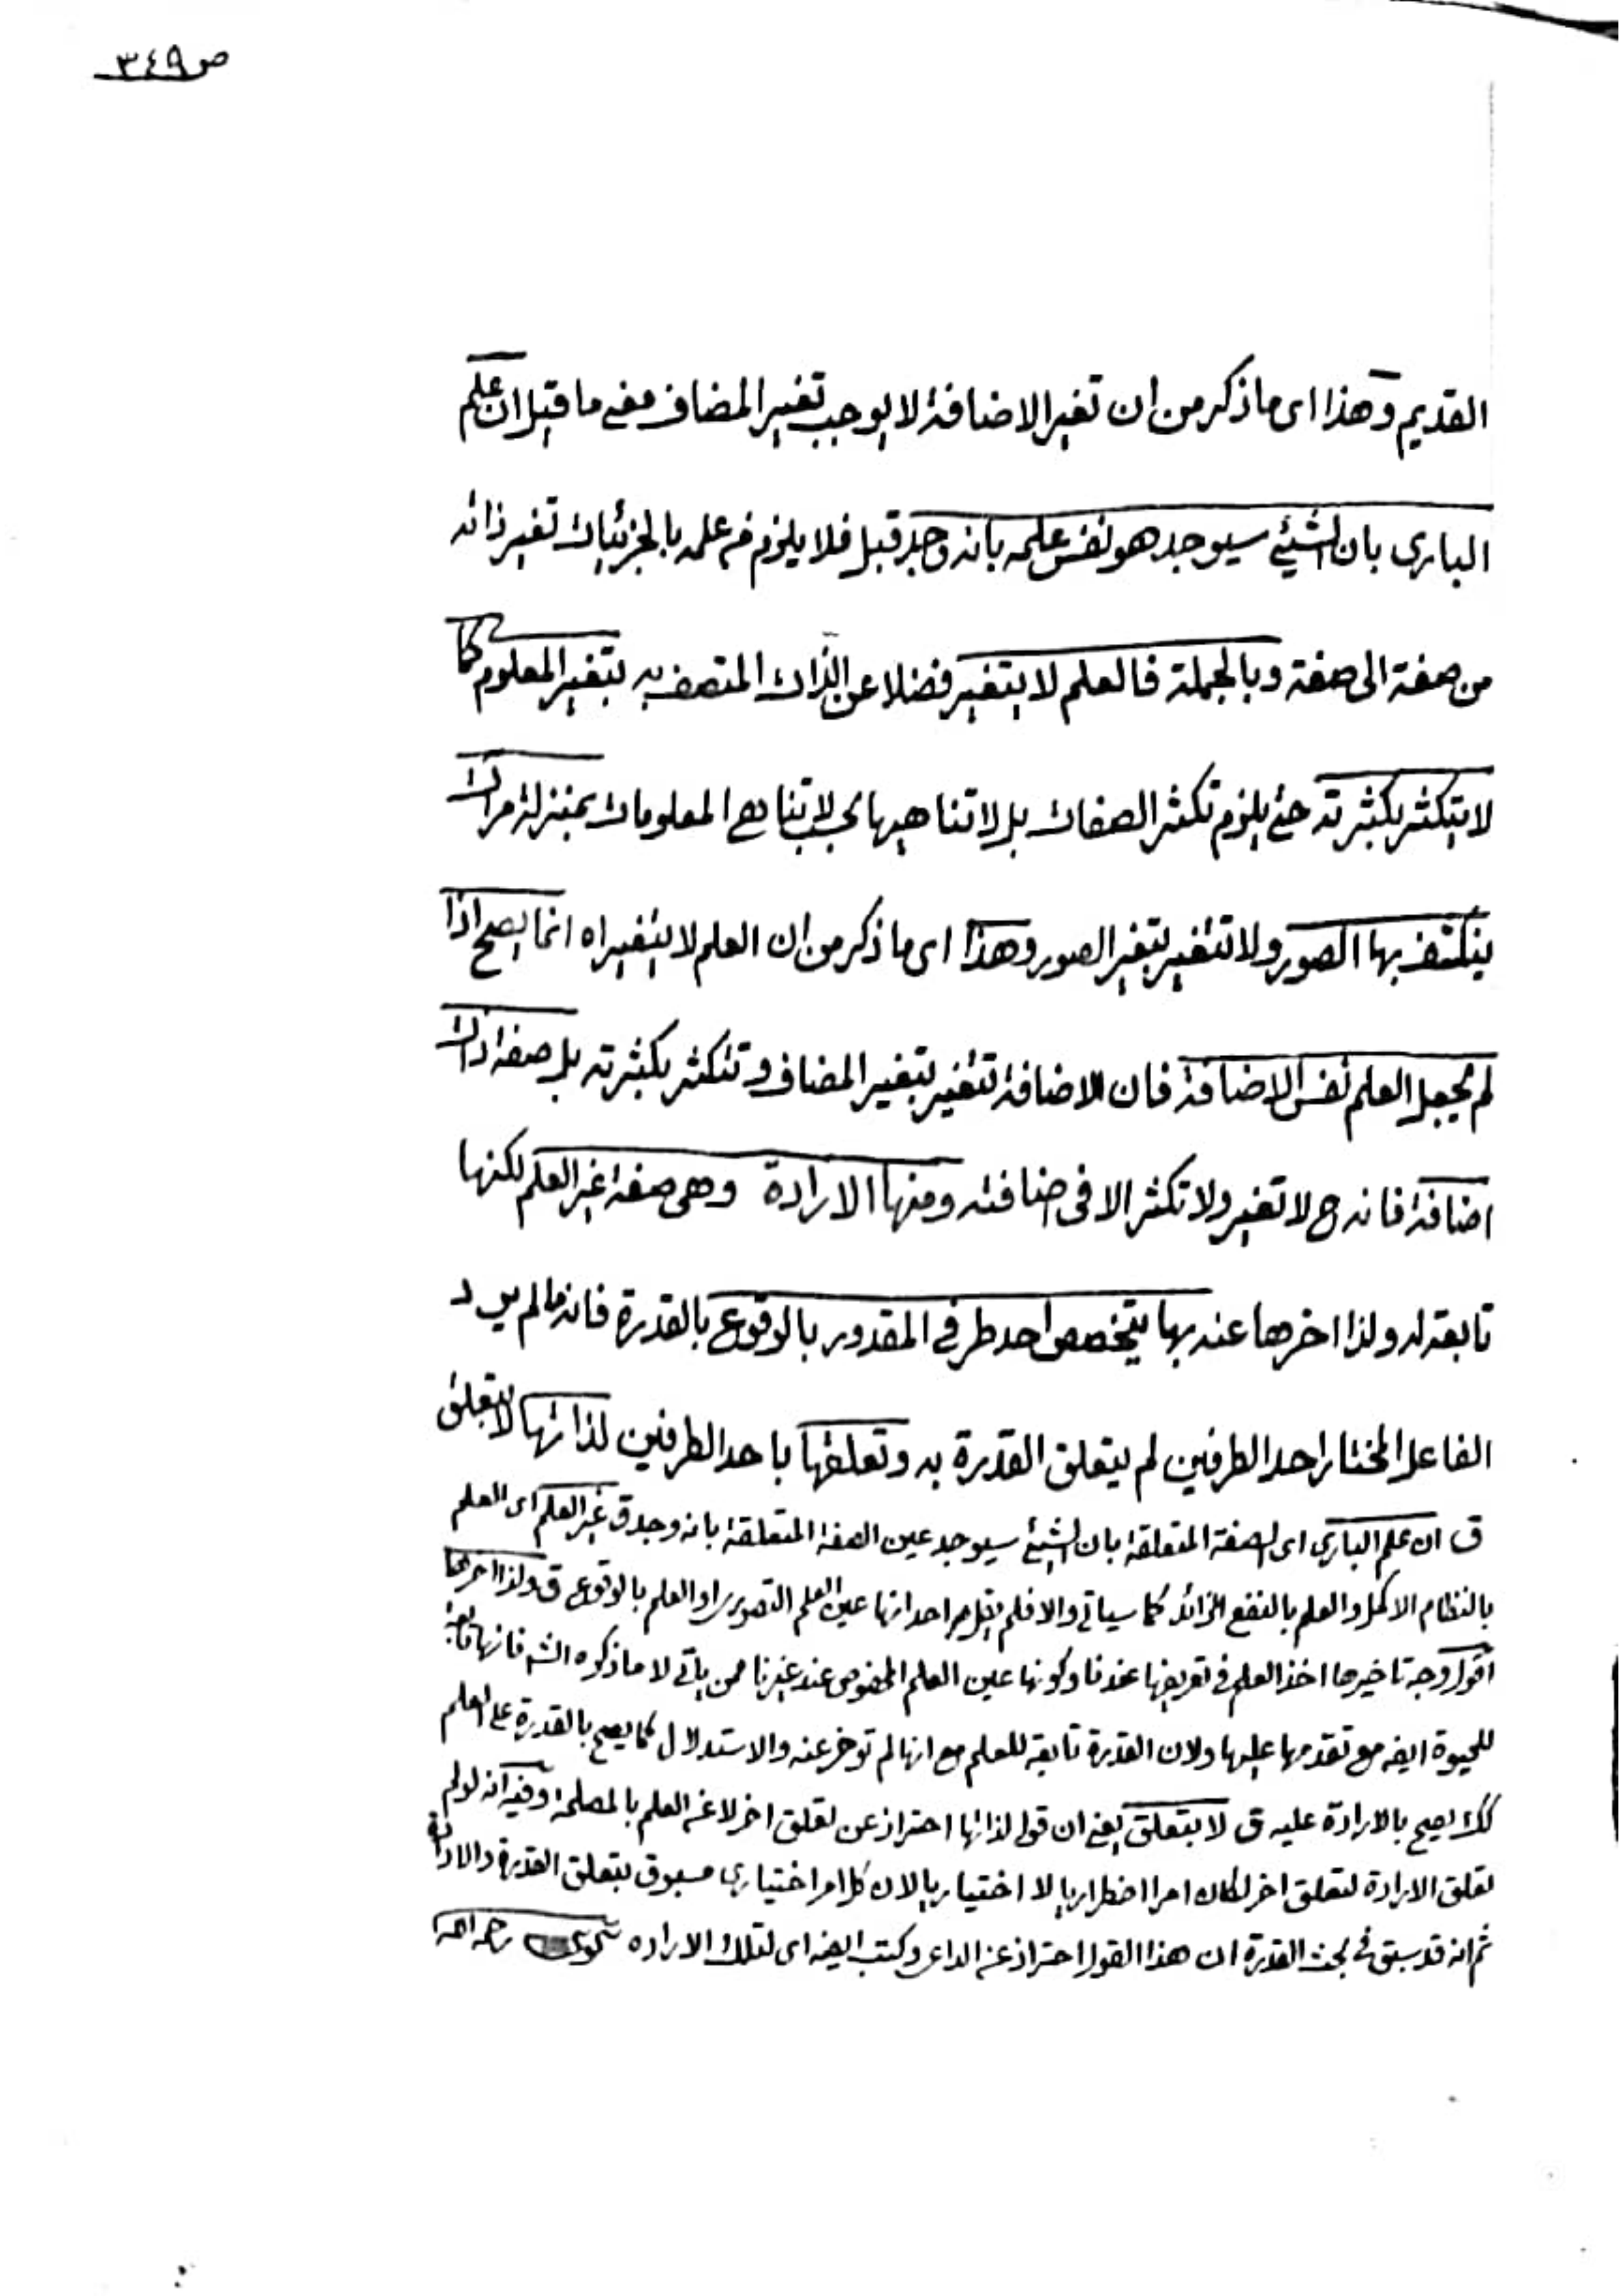 ص ٣٤٩
القديم وهذا اى ما ذكر من ان تغير الاضافة لا يوجب تغيير المضاف معنى ما قيل ان علم
البارى بان الشيئ سيوجد هو نفس علمه بانه وجد قبل فلا يلزم من علمه بالجزئيات تغير ذاته
من صفة الى صفة وبالجملة فالعلم لا يتغير فضلا عن الذات المتصف به بتغير المعلوم كما
لا يتكثر بكثرته حتى يلزم تكثر الصفات بل لا تناهيها بحسب لا تناهى المعلومات بمنزلة مرآت
ينكشف بها الصور ولا تتغير بتغير الصور وهذا اى ما ذكر من ان العلم لا يتغير اه انما يصح اذا
لم يجعل العلم نفس الاضافة فان الاضافة تتغير بتغير المضاف وتتكثر بكثرته بل صفة ذات
اضافة فانه ح لا تغير ولا تكثر الا فى اضافته ومنها الارادة وهى صفة غير العلم لكنها
تابعة له ولذا اخرها عنه بها يتخصص احد طرفى المقدور بالوقوع بالقدرة فانه ما لم يرد
الفاعل المختار احد الطرفين لم يتعلق القدرة به وتعلقها باحد الطرفين لذاتها لا يتعلق
ق ان علم البارى اى الصفة المتعلقة بان الشيئ سيوجد عين الصفة المتعلقة بانه وجد ق غير العلم اى العلم
بالنظام الاكمل والعلم بالنفع الزائد كما سياتى والا فلم يقل احد انها عين العلم التصورى او العلم بالوقوع ق ولذا اخرها
اقول وجه تاخيرها اخذ العلم فى تعريفها عندنا وكونها عين العلم المخصوص عند غيرنا ممن ياتى لا ما ذكره الش فانها تابعة
للحيوة ايضه مع تقدمها عليها ولان القدرة تابعة للعلم مع انها لم توخر عنه والاستدلال كما يصح بالقدرة على العلم
كك يصح بالارادة عليه ق لا يتعلق يعنى ان قوله لذاتها احتراز عن تعلق اخر لا عن العلم بالمصلحة وفيه انه لو لم
تعلق الارادة لتعلق اخر لكان امرا اضطراريا لا اختياريا لان كل امر اختيارى مسبوق بتعلق القدرة والارادة
ثم انه قد سبق فى بحث القدرة ان هذا القول احتراز عن الداعى وكتب ايضه اى لتلك الاراده رحمه الله